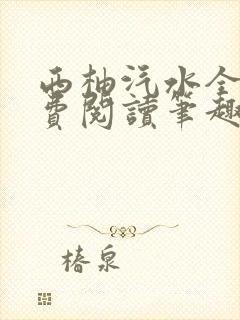 西柚汽水全
费阅读笔趣
椿泉